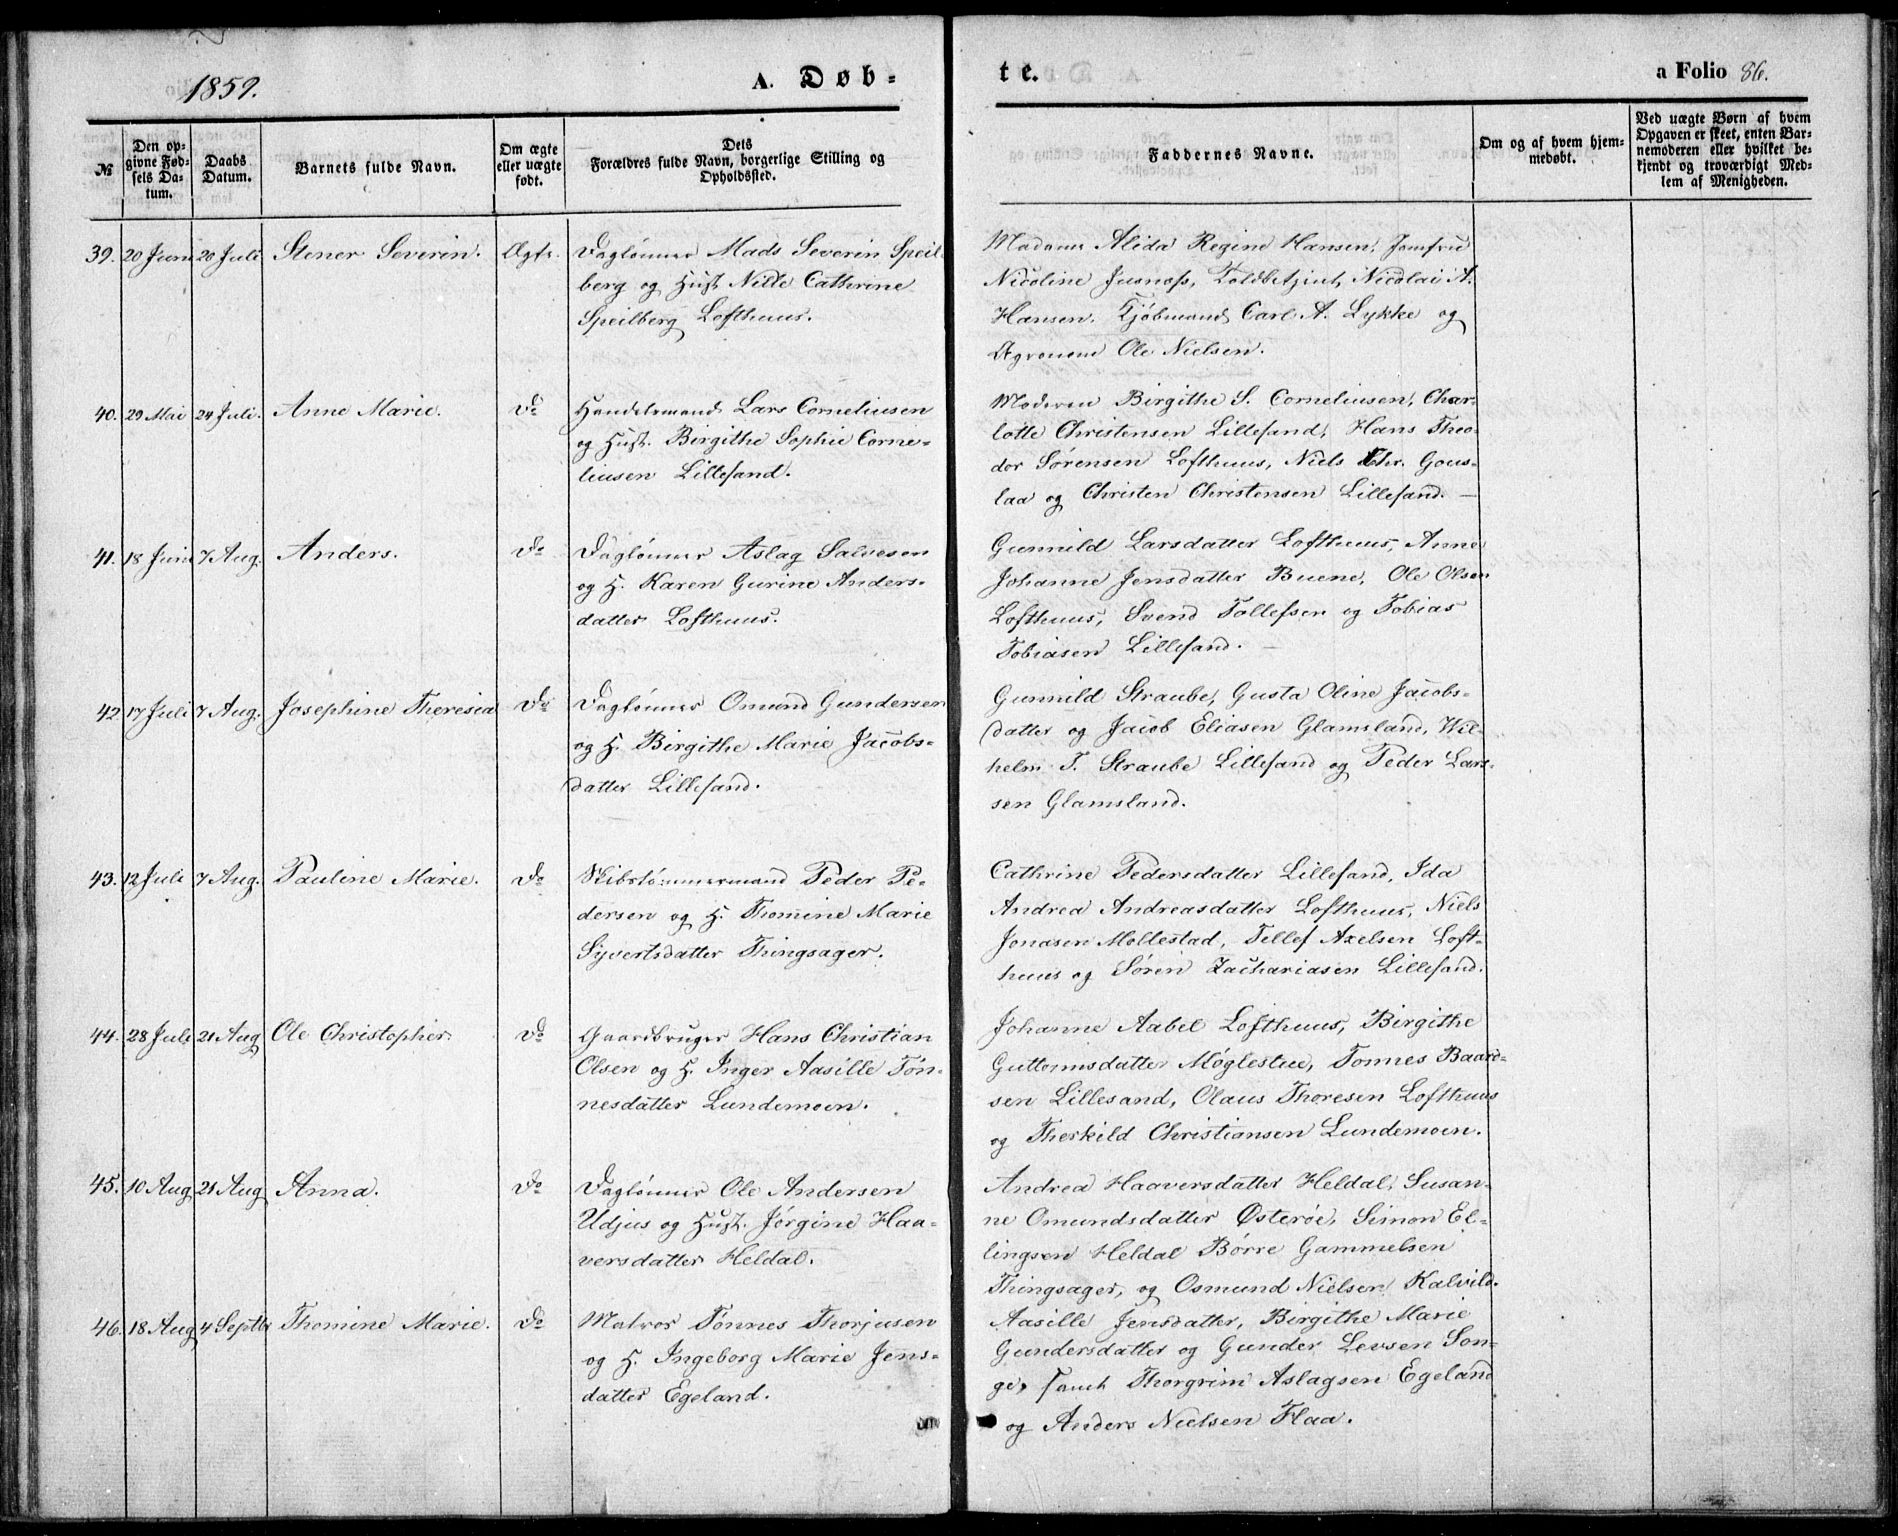 1859.
A. Døb-
te.
a Folio 86.
№
Den op-
givne Fød-
sels Da-
tum.
Daabs
Datum.
Barnets fulde Navn.
Om ægte
eller uægte
født.
Dets
Forældres fulde Navn, borgerlige Stilling og
Opholdssted.
Faddernes Navne.
Om og af hvem hjem-
medøbt.
Ved uægte Børn af hvem
Opgaven er skeet, enten Bar-
nemoderen eller hvilket be-
kjendt og troværdigt Med-
lem af Menigheden.
39. 20 Juni 20 Juli. Stener Severin. Ægte.
Daglønner Mads Severin Speil-
berg og Hust. Nille Cathrine
Speilberg Lofthuus.
Madame Alida Regine Hansen, Jomfru
Nicoline, Toldbetjent, Nicolai A.
Hansen, Kjøbmand Carl A. Lykke og
Agronom Ole Nielsen.
40. 29 Mai 24 Juli. Anne Marie. Do
Handelsmand Lars Corneliusen
og Hust. Birgithe Sophie Corne-
liusen Lillesand.
Moderen Birgithe S. Corneliusen, Char-
lotte Christensen Lillesand, Hans Theo-
dor Sørensen Lofthuus, Niels Chr. Gous-
laa og Christen Christensen Lillesand. —
41. 18 Juni 7 Aug. Anders. Do
Daglønner Aslag Salvesen
og H. Karen Gurine Anders-
datter Lofthuus.
Gunnild Larsdatter Lofthuus, Anne
Johanne Jensdatter Buene, Ole Olsen
Lofthuus, Svend Tollefsen og Tobias
Tobiasen Lillesand. —
42. 17 Juli 7 Aug. Josephine Theresia Do
Daglønner Omund Gundersen
og H. Birgithe Marie Jacobs-
datter Lillesand.
Gunnild Straube, Gusta Oline Jacobs-
datter og Jacob Eliasen Glamsland, Wil-
helm T. Straube Lillesand og Peder Lars-
sen Glamsland.
43. 12 Juli 7 Aug. Pauline Marie. Do
Skibstømmermand Peder Pe-
dersen og H. Thomine Marie
Syvertsdatter Thingsager.
Cathrine Pedersdatter Lillesand, Ida
Andrea Andreasdatter Lofthuus, Niels
Jonasen Mollestad, Tellef Axelsen Loft-
huus og Søren Zachariasen Lillesand.
44. 28 Juli 21 Aug Ole Christopher. Do
Gaardbruger Hans Christian
Olsen og H. Inger Aasille Tøn-
nesdatter Lundemoen.
Johanne Aabel Lofthuus, Birgithe
Guttormsdatter Møglestue, Tønnes Baard-
sen Lillesand, Olaus Thoresen Lofthuus
og Therkild Christiansen Lundemoen.
45. 10 Aug 21 Aug Anna. Do
Daglønner Ole Andersen
Udjus og Hust. Jørgine Haa-
versdatter Heldal.
Andrea Haaversdatter Heldal, Susan-
ne Omundsdatter Østerøe, Simon El-
lingsen Heldal Børre Gammelsen
Thingsager, og Osmund Nielsen Kalvild.
46. 18 Aug 4 Septbr Thomine Marie. Do
Matros Tønnes Thorjusen
og H. Ingeborg Marie Jens-
datter Egeland.
Aasille Jensdatter, Birgithe Marie
Gundersdatter og Gunder Levsen Son-
ge, samt Thorgrim Aslagsen Egeland
og Anders Nielsen Flaa.